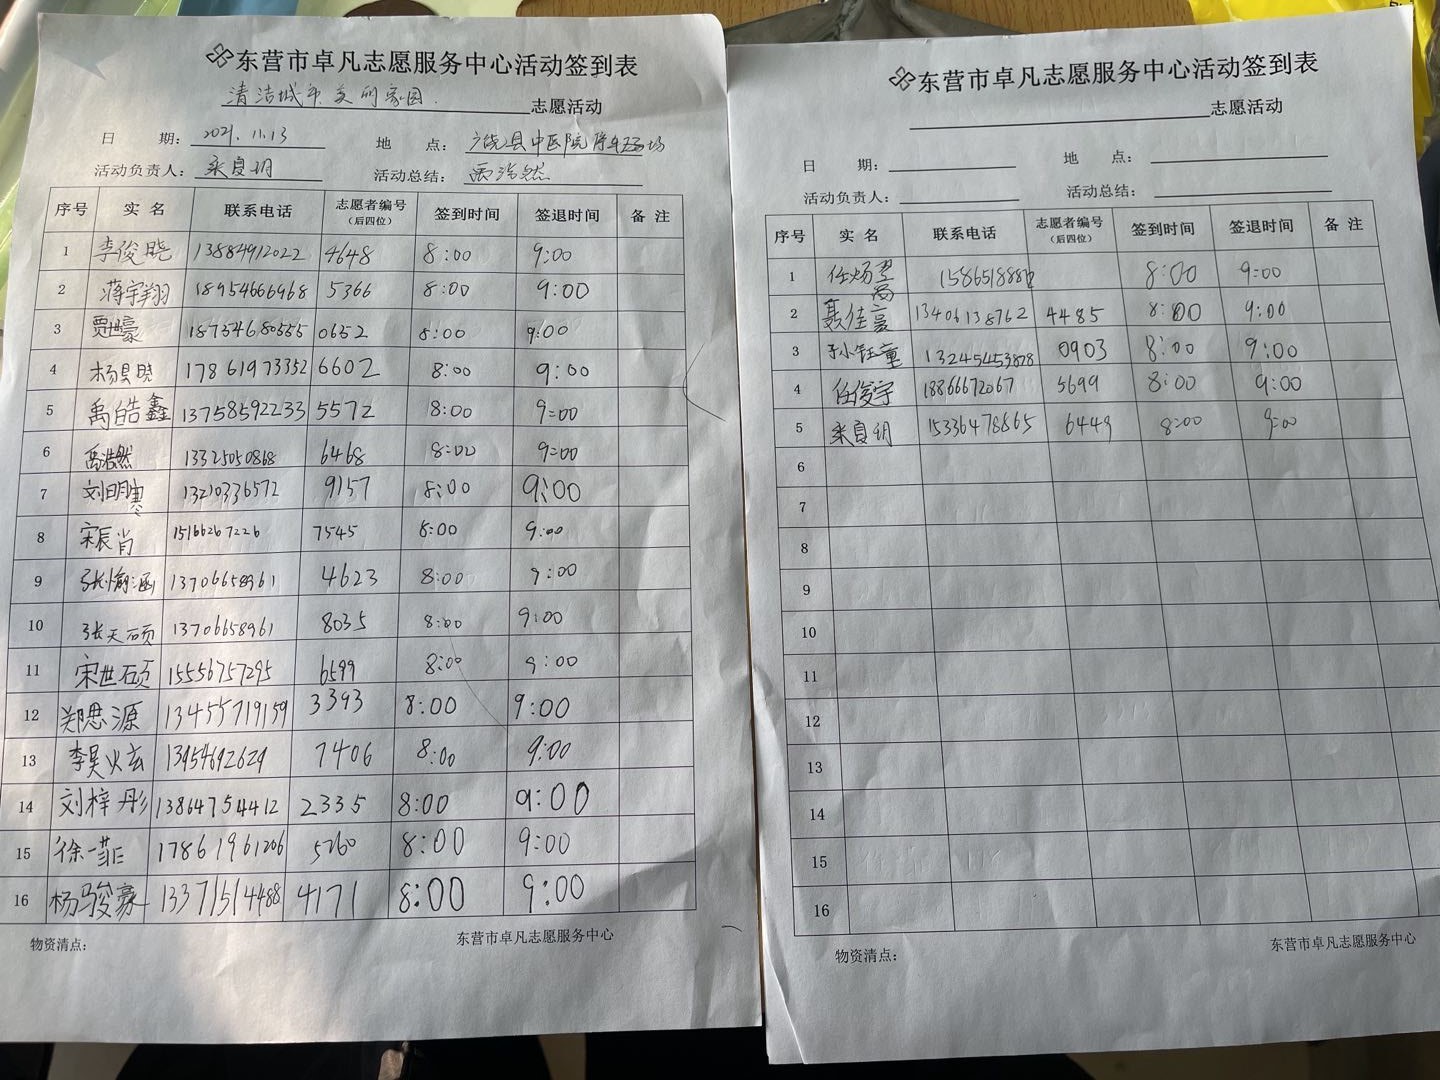 东营市卓凡志愿服务中心活动签到表
清洁城市 美丽家园 志愿活动
日 期: 2021.11.13 地 点: 广饶县中医院停车场
活动负责人: 活动总结:
序号 实 名 联系电话 志愿者编号(后四位) 签到时间 签退时间 备 注
1 李俊晓 13884912022 4648 8:00 9:00
2 蒋宇翔 18954666968 5366 8:00 9:00
3 贾世豪 18754680555 0652 8:00 9:00
4 17861973352 6602 8:00 9:00
5 禹皓鑫 13758592233 5572 8:00 9:00
6 禹浩然 13325050868 6468 8:00 9:00
7 13210336572 9157 8:00 9:00
8 宋辰肖 15166267226 7545 8:00 9:00
9 张愉涵 13706658961 4623 8:00 9:00
10 张天硕 13706658961 8035 8:00 9:00
11 宋世硕 15556757295 6599 8:00 9:00
12 郑思源 13455719159 3393 8:00 9:00
13 李昊炫 13954692629 7406 8:00 9:00
14 刘梓彤 13864754412 2335 8:00 9:00
15 徐一菲 17861961206 5260 8:00 9:00
16 杨骏豪 13371514488 4171 8:00 9:00
物资清点: 东营市卓凡志愿服务中心
东营市卓凡志愿服务中心活动签到表
志愿活动
日 期: 地 点:
活动负责人: 活动总结:
序号 实 名 联系电话 志愿者编号(后四位) 签到时间 签退时间 备 注
1 8:00 9:00
2 聂佳豪 13406138762 4485 8:00 9:00
3 孙钰童 0903 8:00 9:00
4 任俊宇 18866672067 5699 8:00 9:00
5 15336478865 6449 8:00 9:00
6
7
8
9
10
11
12
13
14
15
16
物资清点: 东营市卓凡志愿服务中心